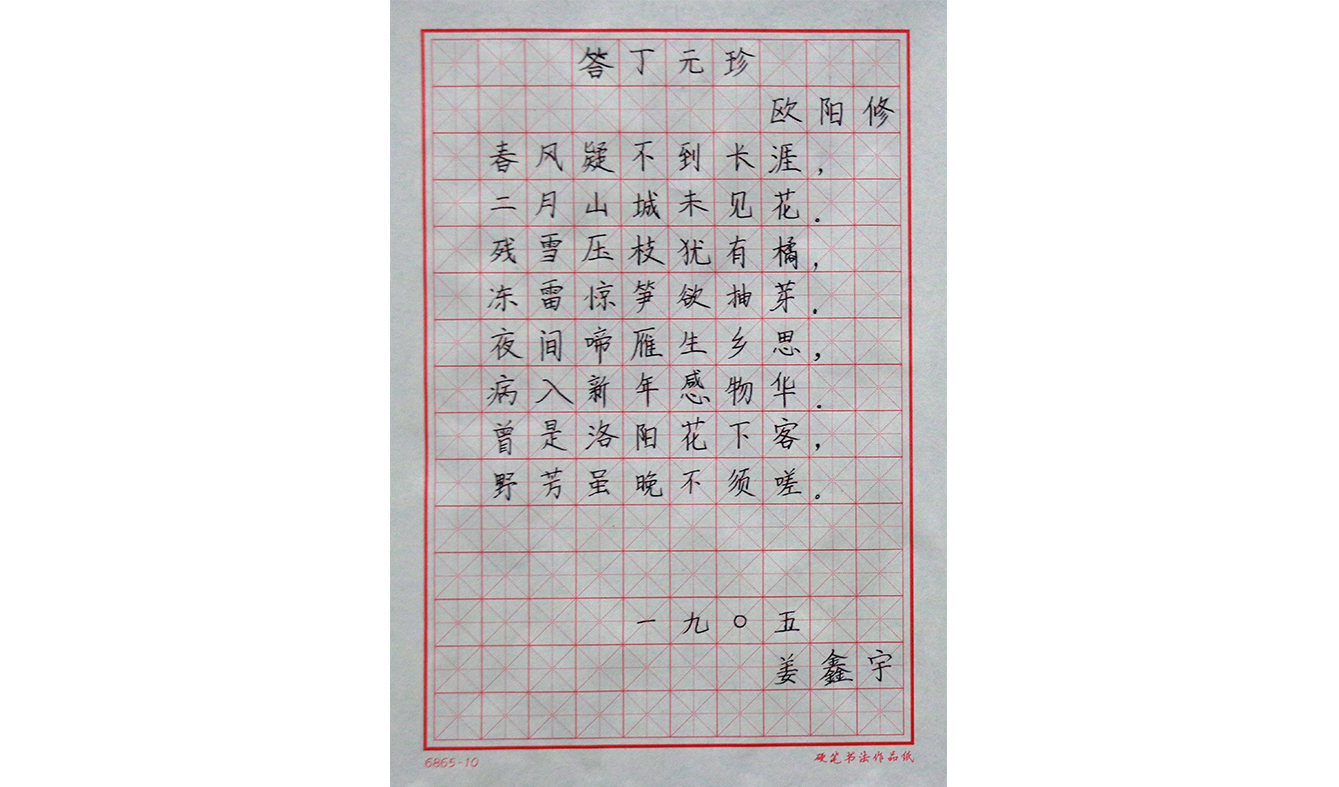 答丁元珍
欧阳修
春风疑不到长涯，
二月山城未见花.
残雪压枝犹有橘，
冻雷惊笋欲抽芽.
夜间啼雁生乡思，
病入新年感物华.
曾是洛阳花下客，
野芳虽晚不须嗟。
一九〇五
姜鑫宇
6865-10 硬笔书法作品纸